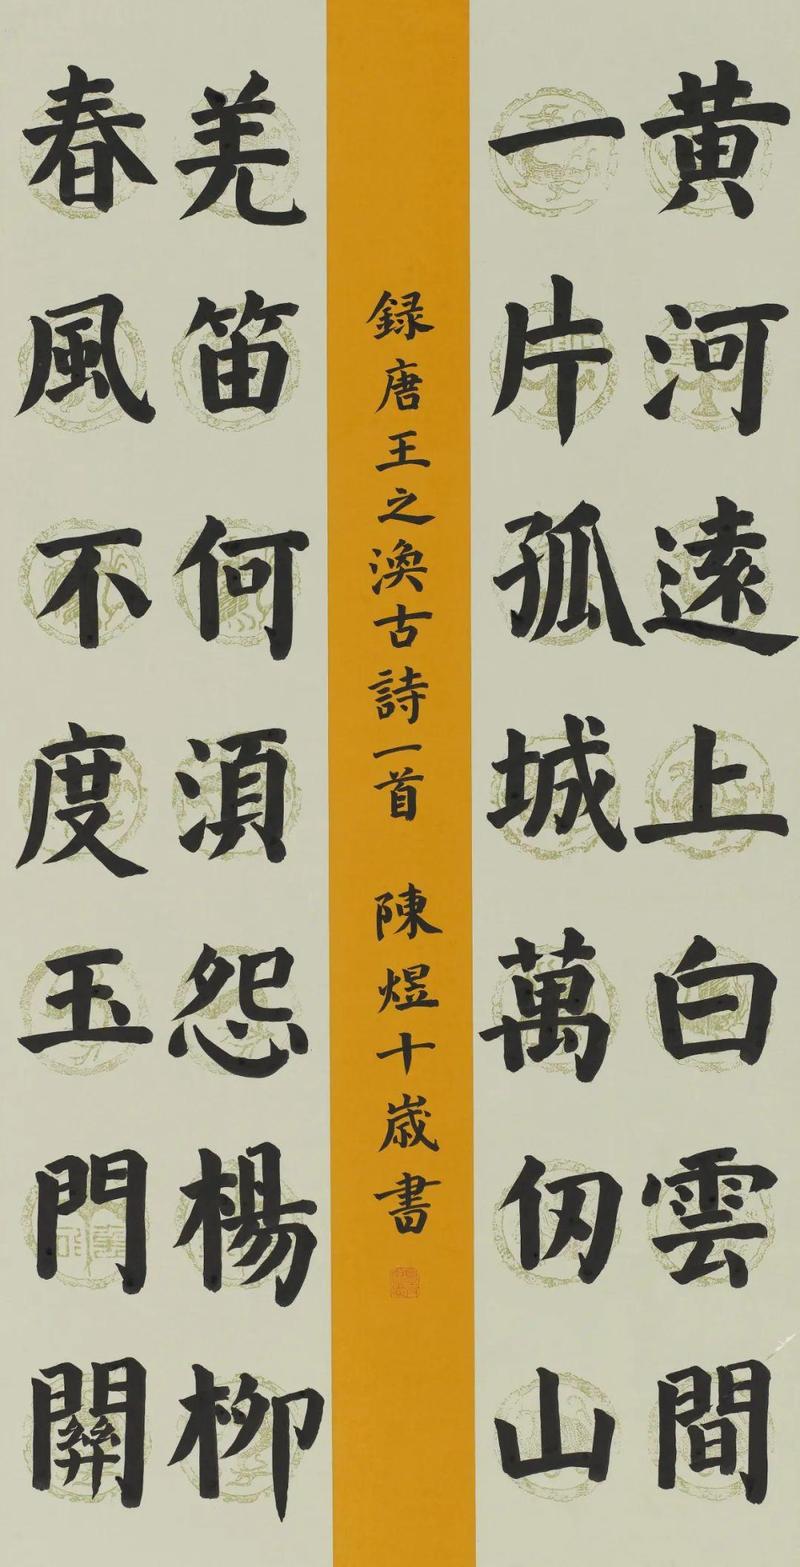 黄河遠上白雲間
一片孤城萬仞山
羌笛何須怨楊柳
春風不度玉門關
録唐王之渙古詩一首 陳煜十歳書